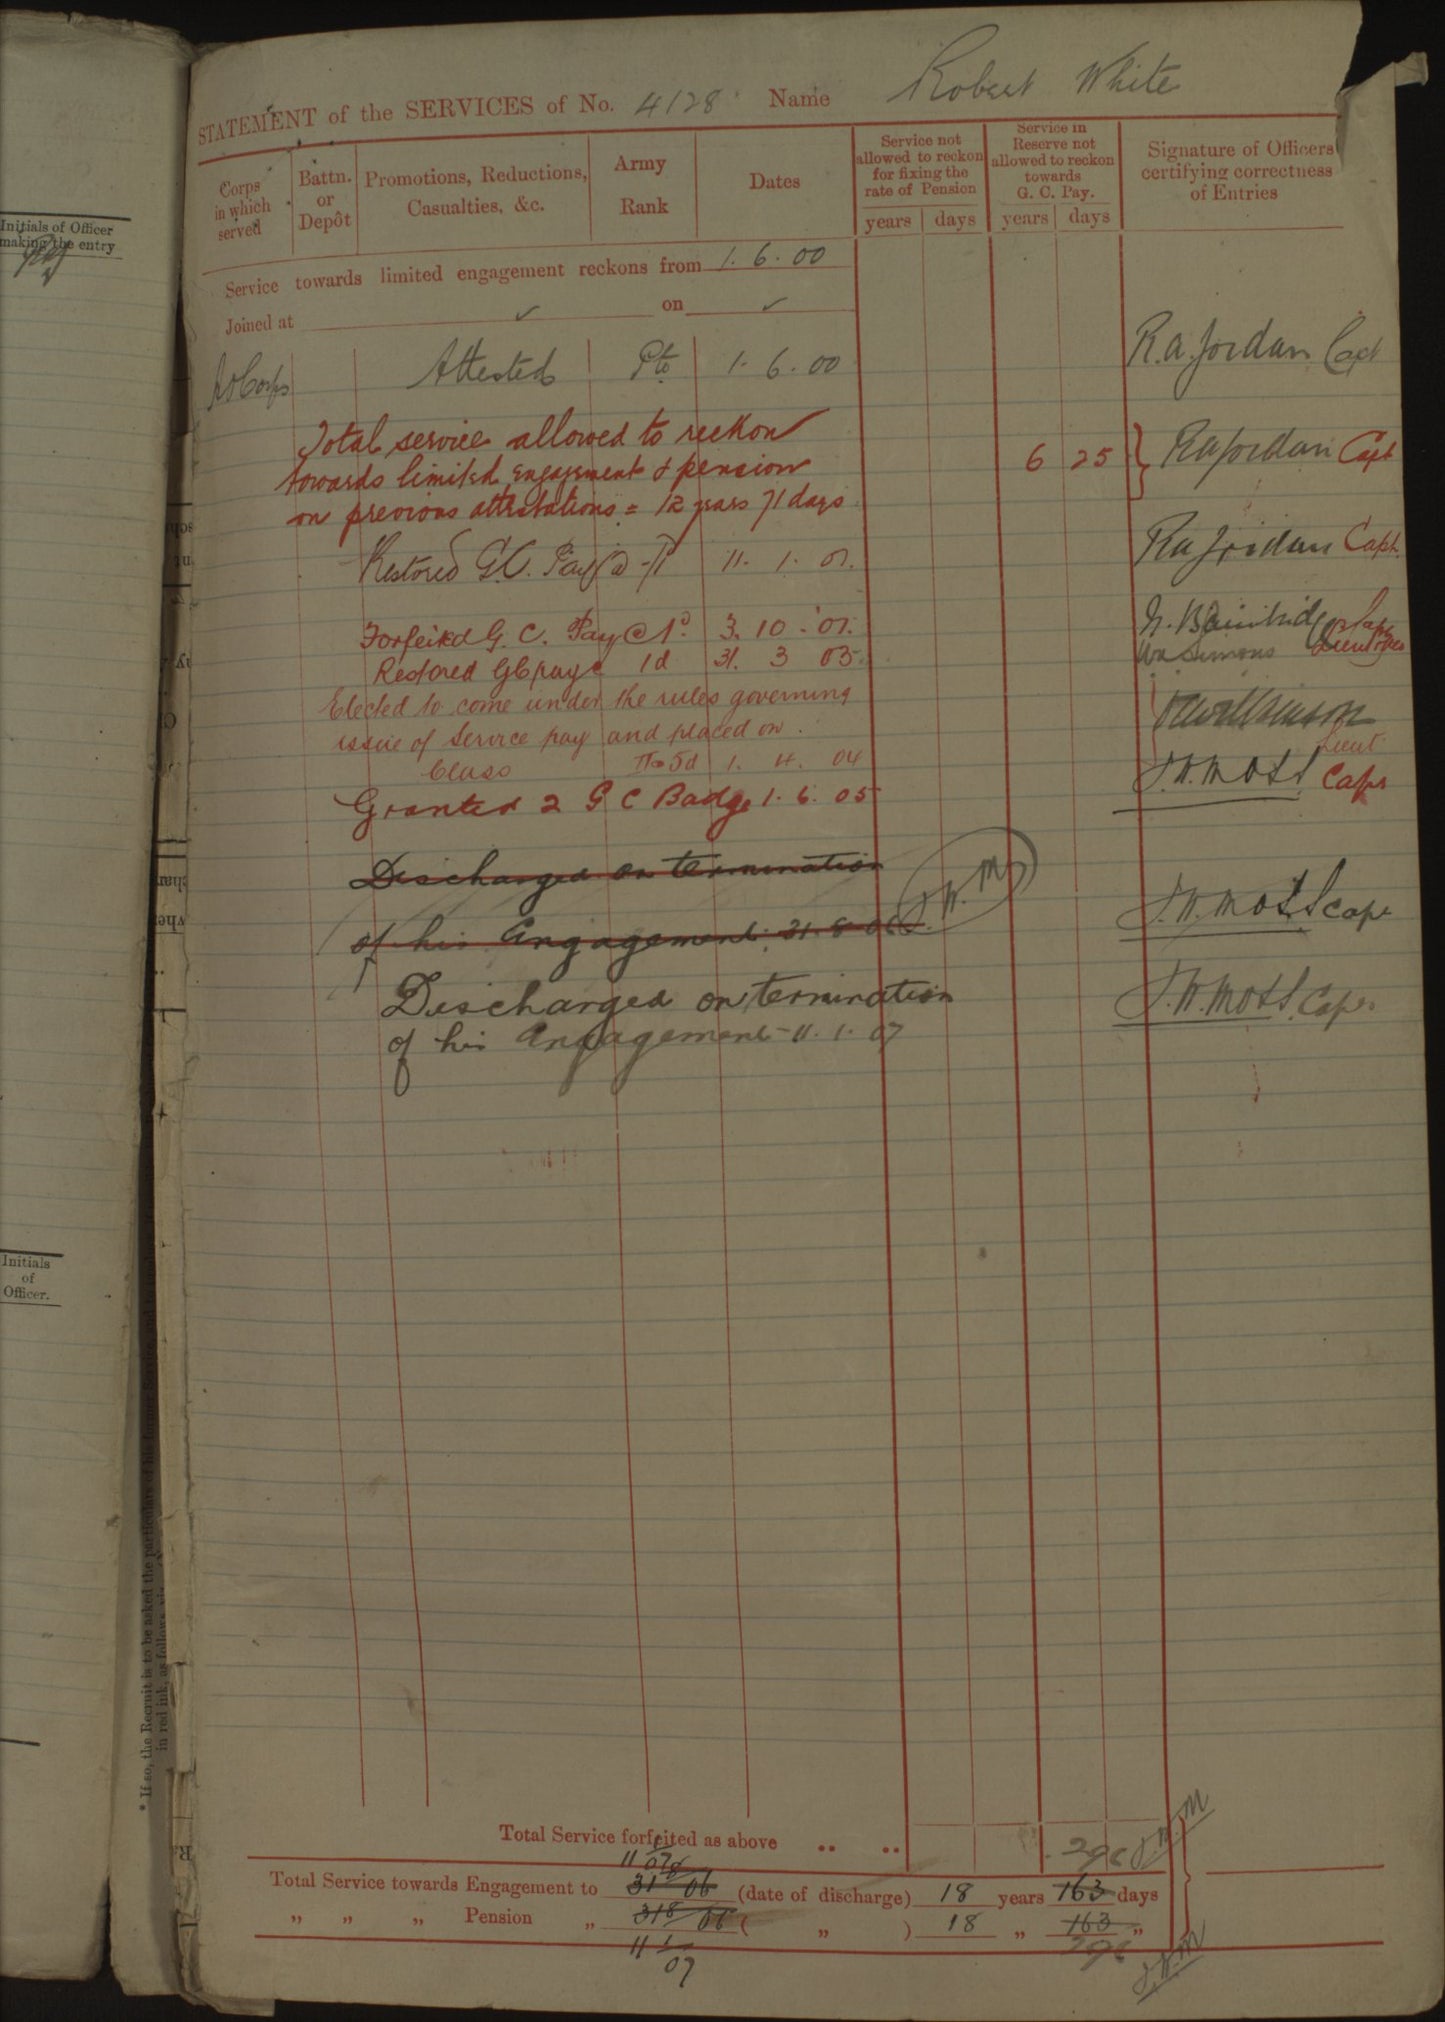 Initials of Officer
making the entry
Initials
of
Officer.
* If so, the Recruit is to be asked the particulars of his former Service, and to
in red ink, as follows, viz.
STATEMENT of the SERVICES of No. 4128 Name Robert White
Corps in which served
Battn. or Depôt
Promotions, Reductions, Casualties, &c.
Army Rank
Dates
Service not allowed to reckon for fixing the rate of Pension
years days
Service in Reserve not allowed to reckon towards G. C. Pay.
years days
Signature of Officers certifying correctness of Entries
Service towards limited engagement reckons from 1. 6. 00
Joined at ✓ on ✓
Attested Pte 1. 6. 00 R. A. Jordan Capt
Total service allowed to reckon
towards limited engagement & pension 6 25 } RA Jordan Capt
on previous attestations = 12 years 71 days
Restored G.C. Pay @ 11. 1. 01. RA Jordan Capt.
Forfeited G. C. Pay @ 1d. 3. 10 . 01.
Restored GC pay @ 1d 31. 3 03 Simons Lieut
Elected to come under the rules governing
issue of Service pay and placed on Lieut
Class II @ 5d 1. 4. 04
Granted 2 G C Badge 1. 6. 05 J.W. Moss Capt
Discharged on termination
of his Engagement. 31. 8 06 J.W.M J.W. Moss Capt
Discharged on termination
of his Engagement 11. 1. 07 J.W. Moss Capt.
Total Service forfeited as above .. .. J.W.M
11 1 07
Total Service towards Engagement to 31 8 06 (date of discharge) 18 years 163 days
„ „ „ Pension „ 31 8 06 ( „ ) 18 „ 163 „
11 1 07 296 J.W.M